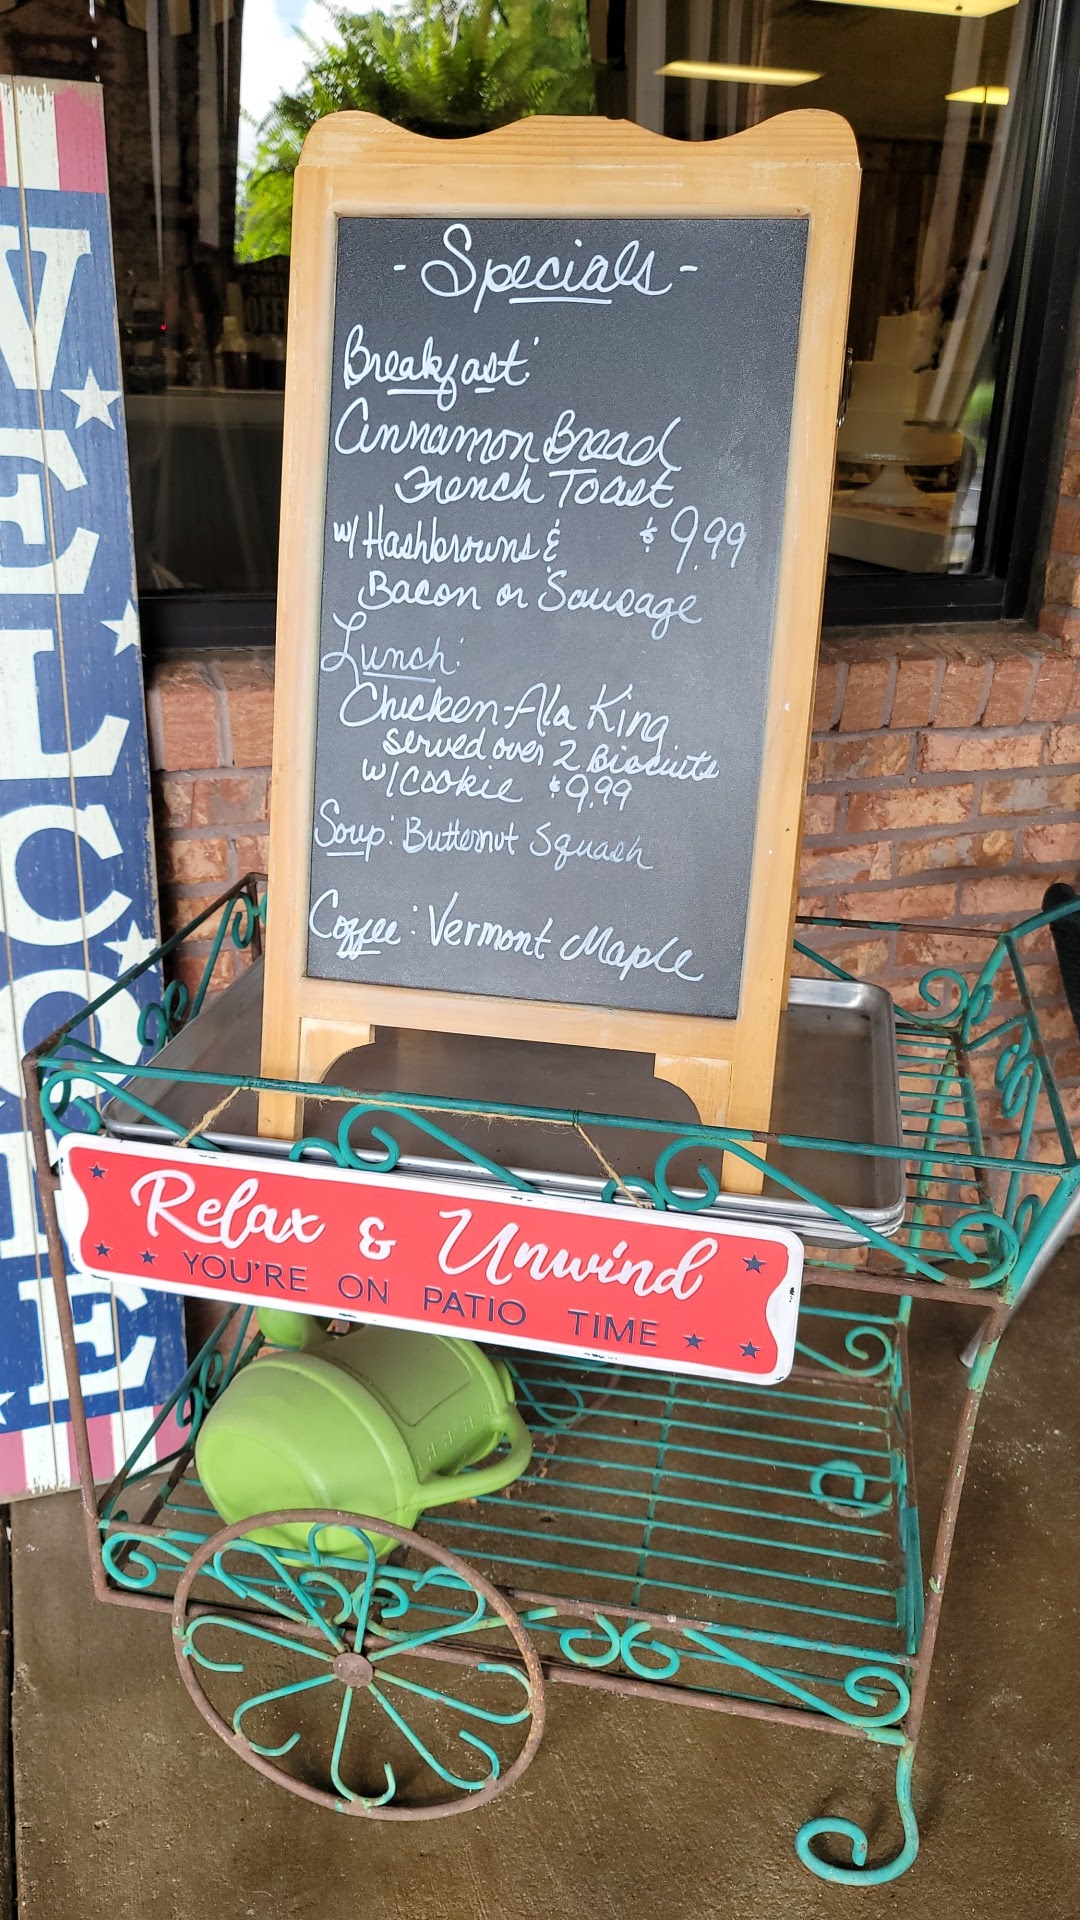 WELCOME
- Specials -
Breakfast:
Cinnamon Bread
French Toast
w/ Hashbrowns & $9.99
Bacon or Sausage
Lunch:
Chicken-Ala King
served over 2 Biscuits
w/ cookie $9.99
Soup: Butternut Squash
Coffee: Vermont Maple
Relax & Unwind
YOU'RE ON PATIO TIME